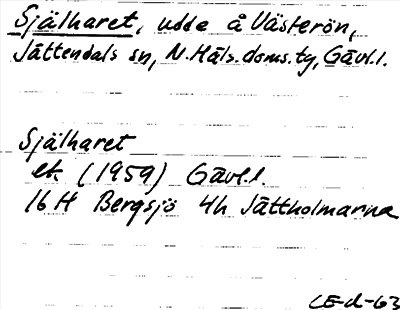 Själharet, udde å Västerön,
Jättendals sn, N. Häls. doms. ty, Gävl. l.
Själharet
ek (1959) Gävl. l.
16 H Bergsjö 4h Jättholmarna
CEd-63